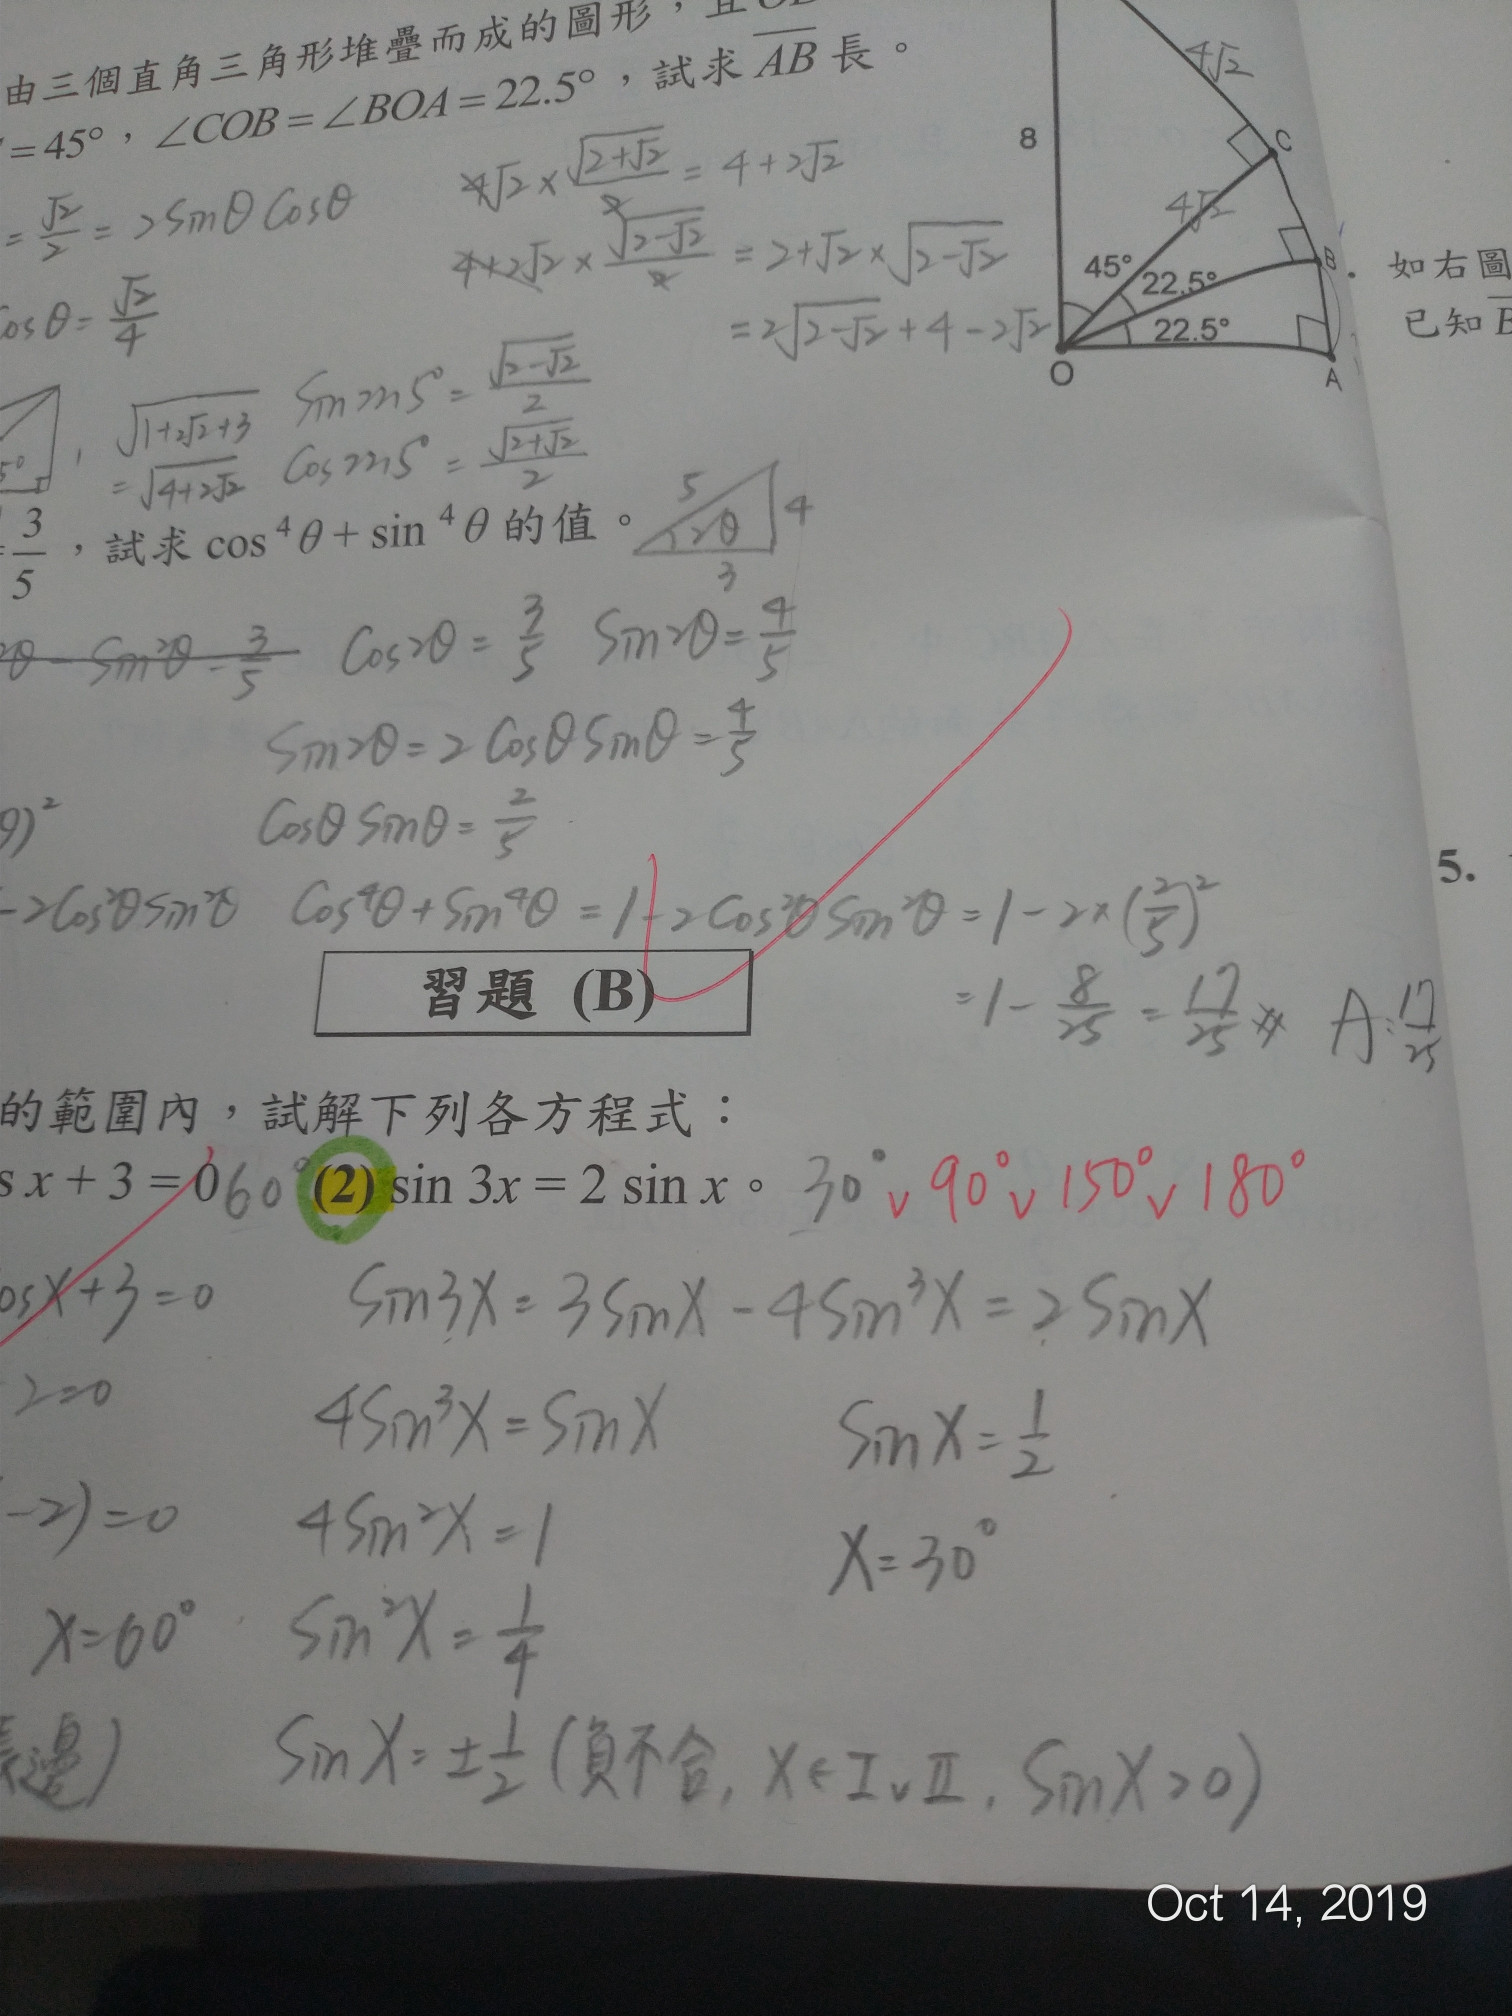 由三個直角三角形堆疊而成的圖形，且
= 45°，∠COB = ∠BOA = 22.5°，試求 AB 長。
= √2/2 = 2 Sinθ Cosθ
osθ = √2/4
4√2 × √(2+√2)/2 = 4+2√2
4+2√2 × √(2-√2)/2 = 2+√2 × √(2-√2)
= 2√(2-√2) + 4 - 2√2
√(1+2√2+3)
= √(4+2√2)
Sin22.5° = √(2-√2)/2
Cos22.5° = √(2+√2)/2
8
4√2
C
4√2
B
45°
22.5°
22.5°
O
A
如右圖
已知
3/5，試求 cos⁴θ + sin⁴θ 的值。
5
4
2θ
3
2θ - Sin²θ = 3/5
Cos2θ = 3/5 Sin2θ = 4/5
Sin2θ = 2 Cosθ Sinθ = 4/5
θ)²
Cosθ Sinθ = 2/5
- 2Cos²θ Sin²θ
Cos⁴θ + Sin⁴θ = 1 - 2Cos²θ Sin²θ = 1 - 2×(2/5)²
= 1 - 8/25 = 17/25 A: 17/25
5.
習題 (B)
的範圍內，試解下列各方程式：
s x + 3 = 0 60° (2) sin 3x = 2 sin x。 30° ∨ 90° ∨ 150° ∨ 180°
osX+3=0
2=0
-2)=0
X=60°
長邊)
Sin3X = 3SinX - 4Sin³X = 2SinX
4Sin³X = SinX
4Sin²X = 1
Sin²X = 1/4
SinX = ±1/2 (負不合, X∈I∨II, SinX>0)
SinX = 1/2
X = 30°
Oct 14, 2019